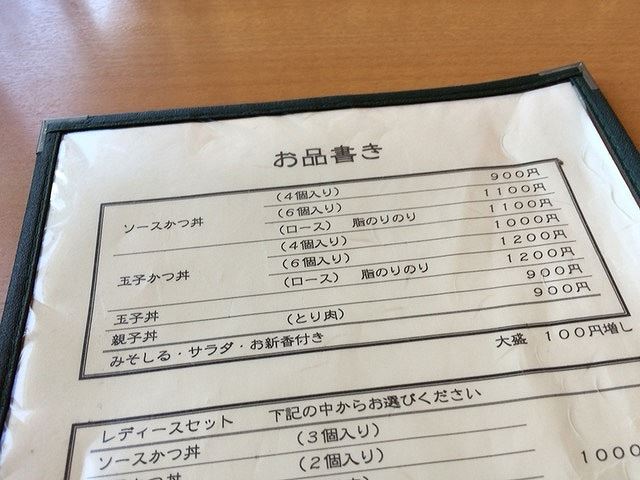 お品書き
ソースかつ丼 (4個入り) 900円
(6個入り) 1100円
(ロース) 脂のりのり 1100円
玉子かつ丼 (4個入り) 1000円
(6個入り) 1200円
(ロース) 脂のりのり 1200円
玉子丼 900円
親子丼 (とり肉) 900円
みそしる・サラダ・お新香付き 大盛 100円増し
レディースセット 下記の中からお選びください
ソースかつ丼 (3個入り)
(2個入り) 1000